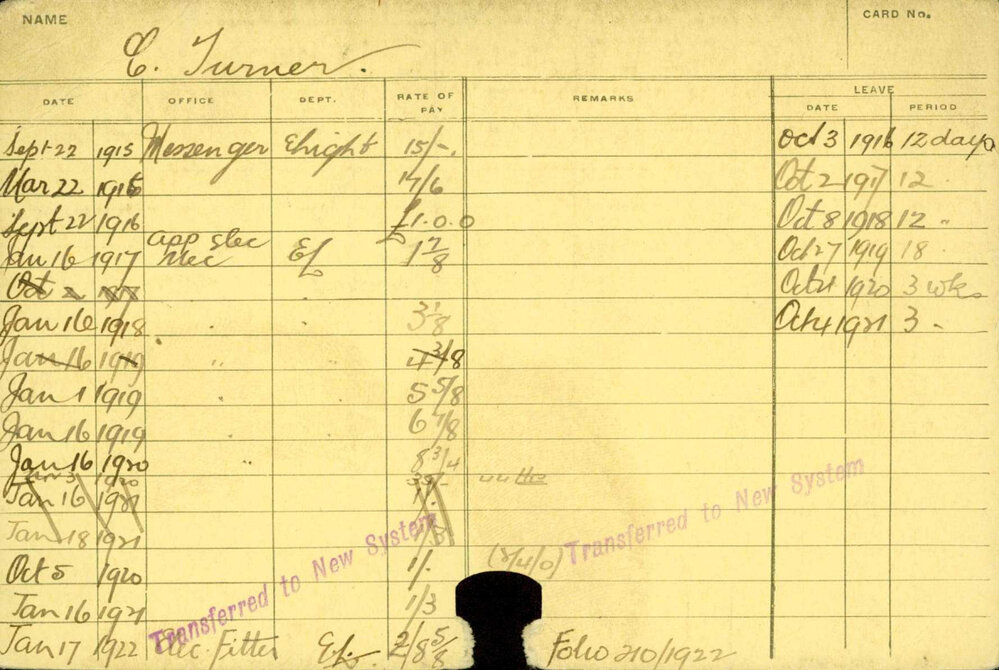 NAME
CARD No.
C. Turner.
DATE OFFICE DEPT. RATE OF PAY REMARKS LEAVE DATE PERIOD
Sept 22 1915 Messenger Elight 15/-. Oct 3 1916 12 days
Mar 22 1916 17/6 Oct 2 1917 12
Sept 22 1916 £1.0.0 Oct 8 1918 12 "
Jan 16 1917 App Elec Mec EL 1 7/8 Oct 7 1919 18
Oct 1920 3 wks
Jan 16 1918 " " 3 1/8 Oct 4 1921 3 "
Jan 16 1919 " 4 3/8
Jan 1 1919 5 5/8
Jan 16 1919 " 6 7/8
Jan 16 1920 8 3/4
Jan 16 1921 1/-
Jan 18 1921 1/3
Oct 5 1920 1/- (2/4/0)
Jan 16 1921 1/3
Jan 17 1922 Elec. Fitter EL. 2/8 5/8 Folio 210/1922
Transferred to New System
Transferred to New System